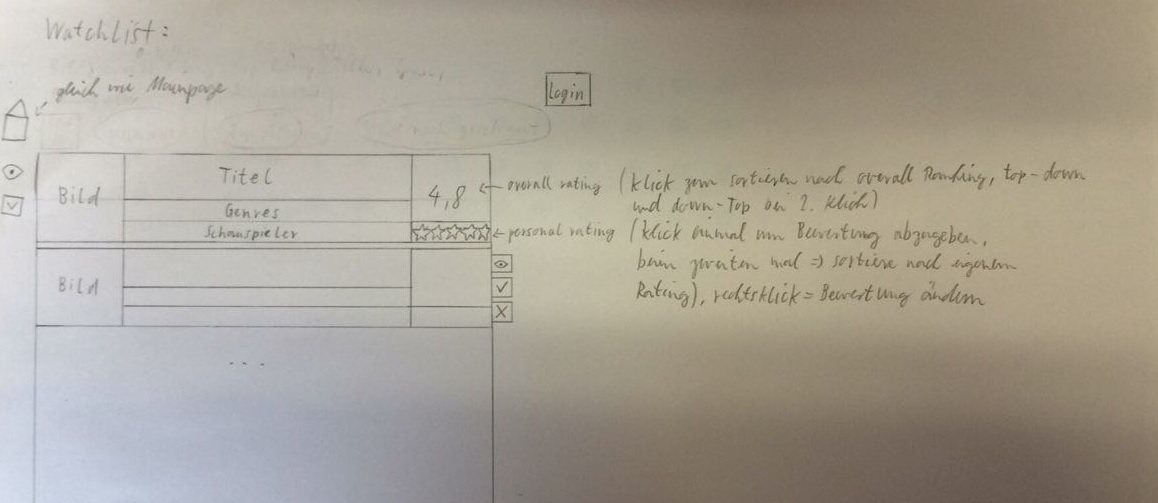 Watchlist:
gleich wie Mainpage
Login
Bild
Titel
4,8
overall rating (klick zum sortieren nach overall Ranking, top-down
und down-Top bei 2. klick)
Genres
Schauspieler
personal rating (klick einmal um Bewertung abzugeben,
beim zweiten mal => sortiere nach eigenem
Rating), rechtsklick = Bewertung ändern
Bild
...